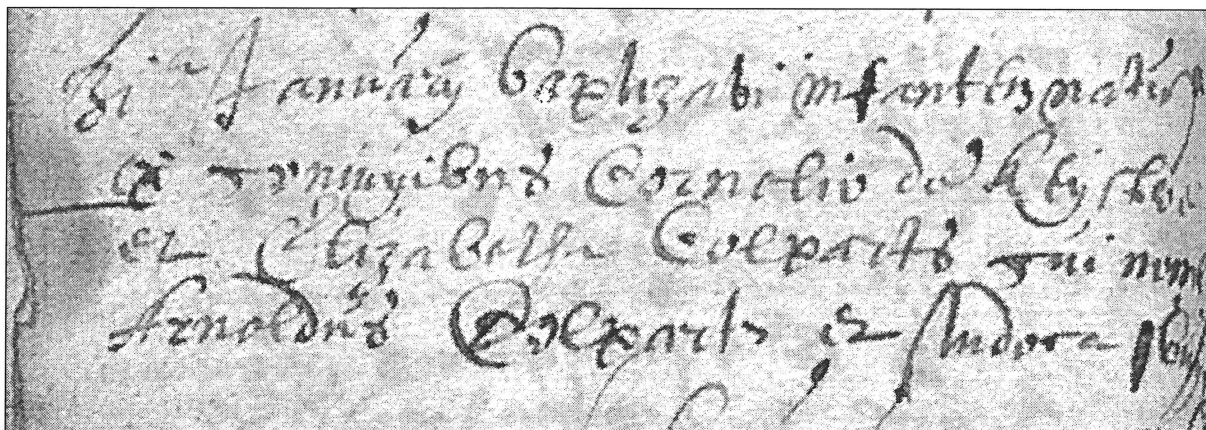 Januarij baptizavi infantem natum
ex coniugibus Cornelio de Keyster
et Elizabetha Colparts cui
Arnoldus Colparts et